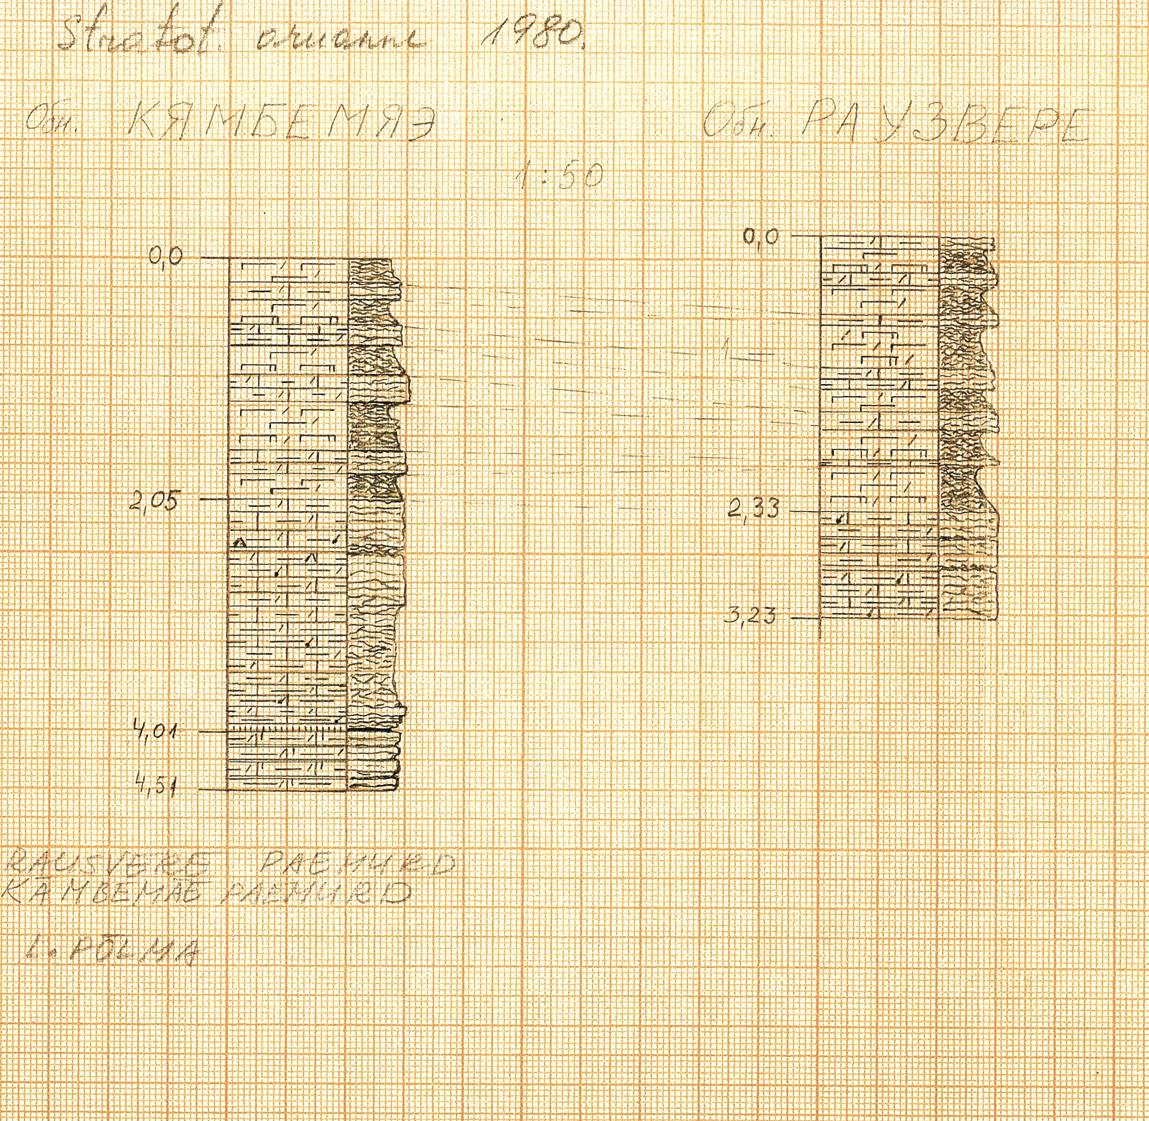 Stratot. aruanne 1980.
Обн. КЯМБЕМЯЭ
Обн. РАУЗВЕРЕ
1:50
0,0
2,05
4,01
4,51
0,0
2,33
3,23
RAUSVERE PAEMURD
KÄMBEMÄE PAEMURD
L. PÕLMA